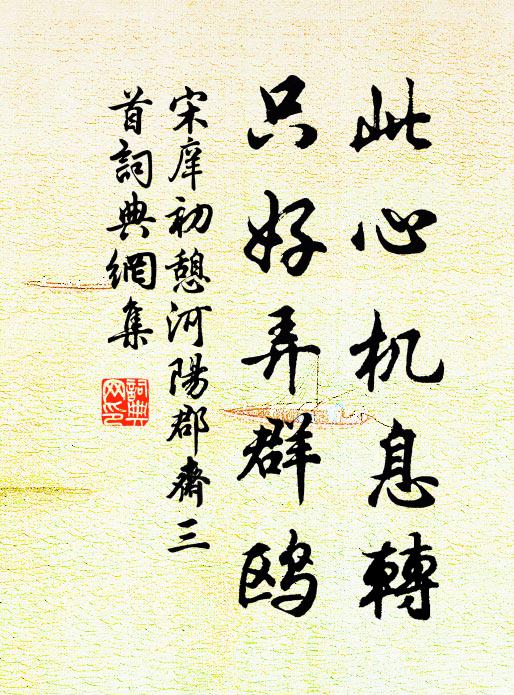 此心机息轉
只好弄群鸥
宋庠初憩河陽郡齋三
首詞典網集
詞典网印